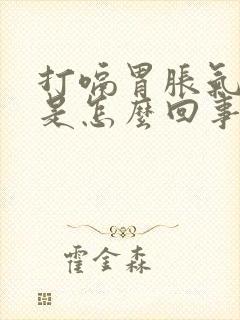 打嗝胃脹氣
是怎麼回事
霍金森